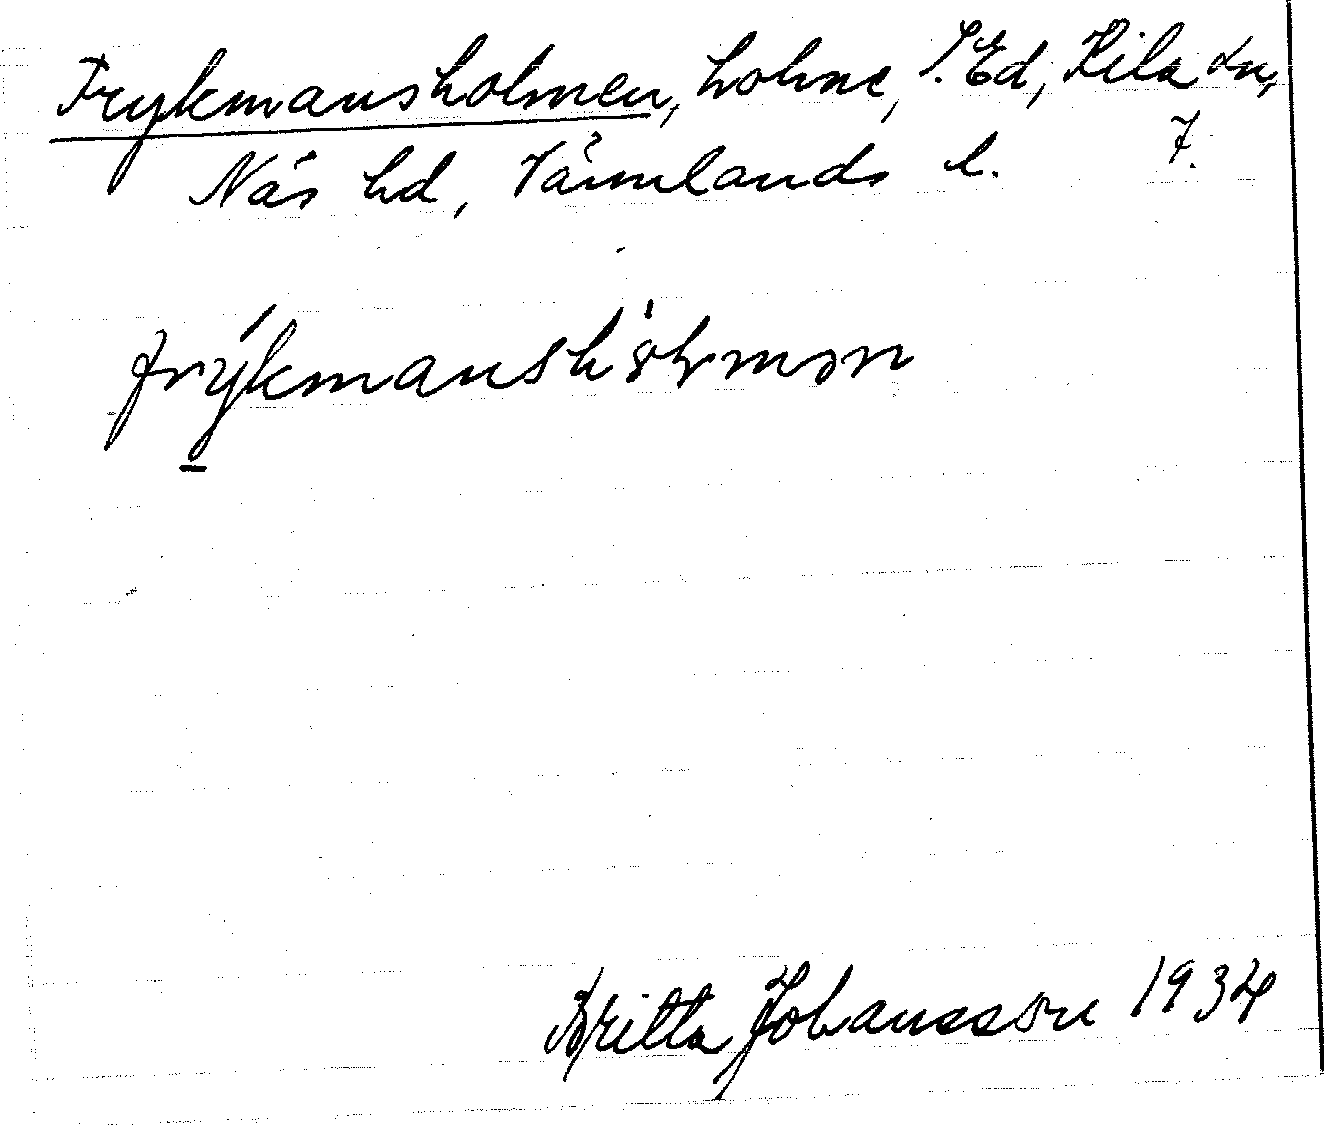 Frykmansholmen, holme, S. Ed, Kila sn,
Näs hd, Värmlands l. 7.
frýkmansh'ɷɽmən
Britta Johansson 1934